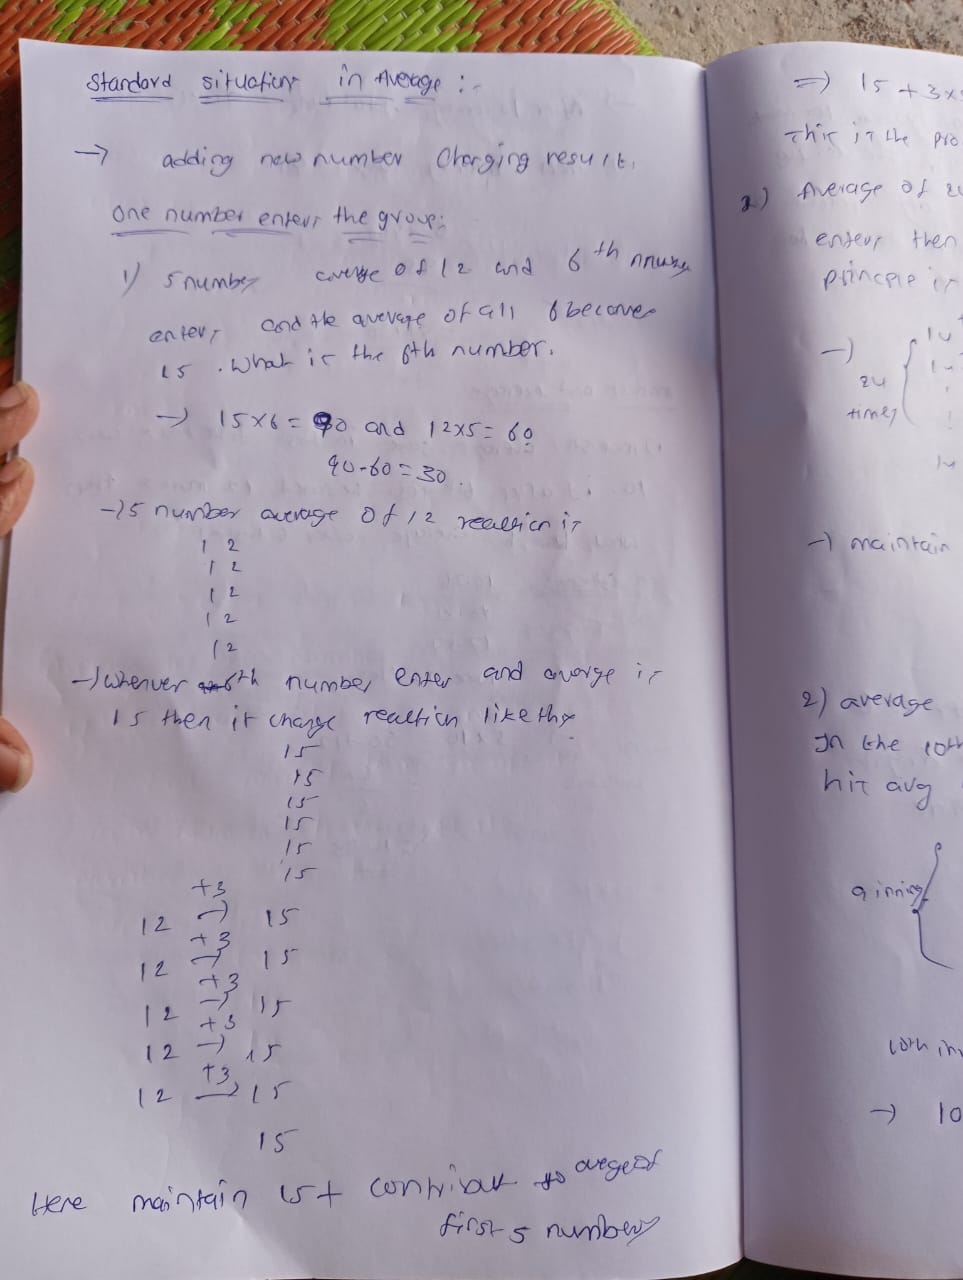 Standard situation in Average :-
→ adding new number Changing result.
One number enters the group:
1) 5 number average of 12 and 6th
enter, and the average of all 6 becomes
15 . What is the 6th number.
→ 15×6 = 90 and 12×5 = 60
90-60 = 30.
→ 5 number average of 12 realtion is
12
12
12
12
12
→ whenver 6th number enter and avarge is
15 then it change realtion like thy
15
15
15
15
15
15
12 +3 → 15
12 +3 → 15
12 +3 → 15
12 +3 → 15
12 +3 → 15
15
Here maintain 15+ contribut to avegeof
first 5 numbers
⇒ 15 + 3×
This is the pro
2) Average of 24
enter, then
principle is
→
24
times
→ maintain
2) average
In the 10th
hit avg
9 inning
10th in
→ 10